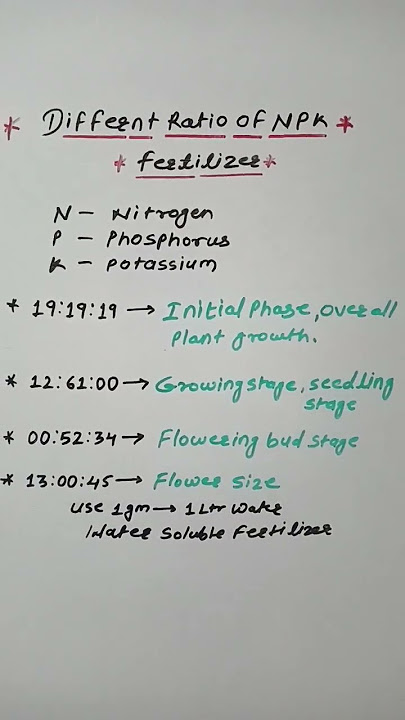 * Differnt Ratio of NPK *
* fertilizer *
N - Nitrogen
P - Phosphorus
K - potassium
* 19:19:19 → Initial Phase, overall
plant growth.
* 12:61:00 → Growing stage, seedling
stage
* 00:52:34 → Flowering bud stage
* 13:00:45 → Flower size
use 1gm → 1 Ltr Water
Water Soluble Fertilizer